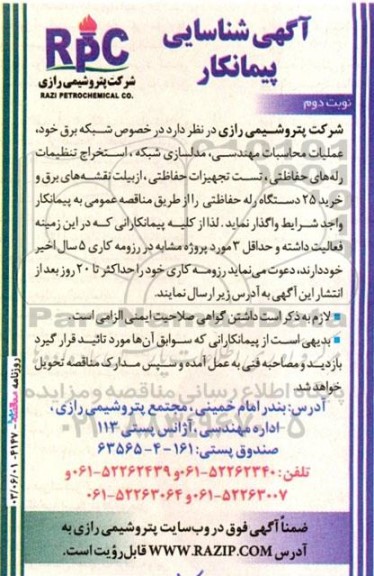 آگهی شناسایی
پیمانکار
RPC
شرکت پتروشیمی رازی
RAZI PETROCHEMICAL CO.
نوبت دوم
شرکت پتروشیمی رازی در نظر دارد در خصوص شبکه برق خود،
عملیات محاسبات مهندسی، مدلسازی شبکه ، استخراج تنظیمات
رله‌های حفاظتی ، تست تجهیزات حفاظتی ، ازبیلت نقشه‌های برق و
خرید ۲۵ دستگاه رله حفاظتی را از طریق مناقصه عمومی به پیمانکار
واجد شرایط واگذار نماید. لذا از کلیه پیمانکارانی که در این زمینه
فعالیت داشته و حداقل ۳ مورد پروژه مشابه در رزومه کاری ۵ سال اخیر
خود دارند، دعوت می‌نماید رزومه کاری خود را حداکثر تا ۲۰ روز بعد از
انتشار این آگهی به آدرس زیر ارسال نمایند.
لازم به ذکر است داشتن گواهی صلاحیت ایمنی الزامی است.
بدیهی است از پیمانکارانی که سوابق آن‌ها مورد تائید قرار گیرد
بازدید و مصاحبه فنی به عمل آمده و سپس مدارک مناقصه تحویل
خواهد شد.
آدرس: بندر امام خمینی، مجتمع پتروشیمی رازی،
اداره مهندسی، آژانس پستی ۱۱۳
صندوق پستی: ۱۶۱-۴-۶۳۵۶۵
تلفن: ۵۲۲۶۲۳۴۰-۰۶۱ و ۵۲۲۶۲۴۳۹-۰۶۱ و
۵۲۲۶۳۰۰۷-۰۶۱ و ۵۲۲۶۳۰۶۴-۰۶۱
ضمناً آگهی فوق در وب‌سایت پتروشیمی رازی به
آدرس WWW.RAZIP.COM قابل رؤیت است.
روزنامه مناقصه ۴۱۴۷- ۰۳/۰۶/۰۱